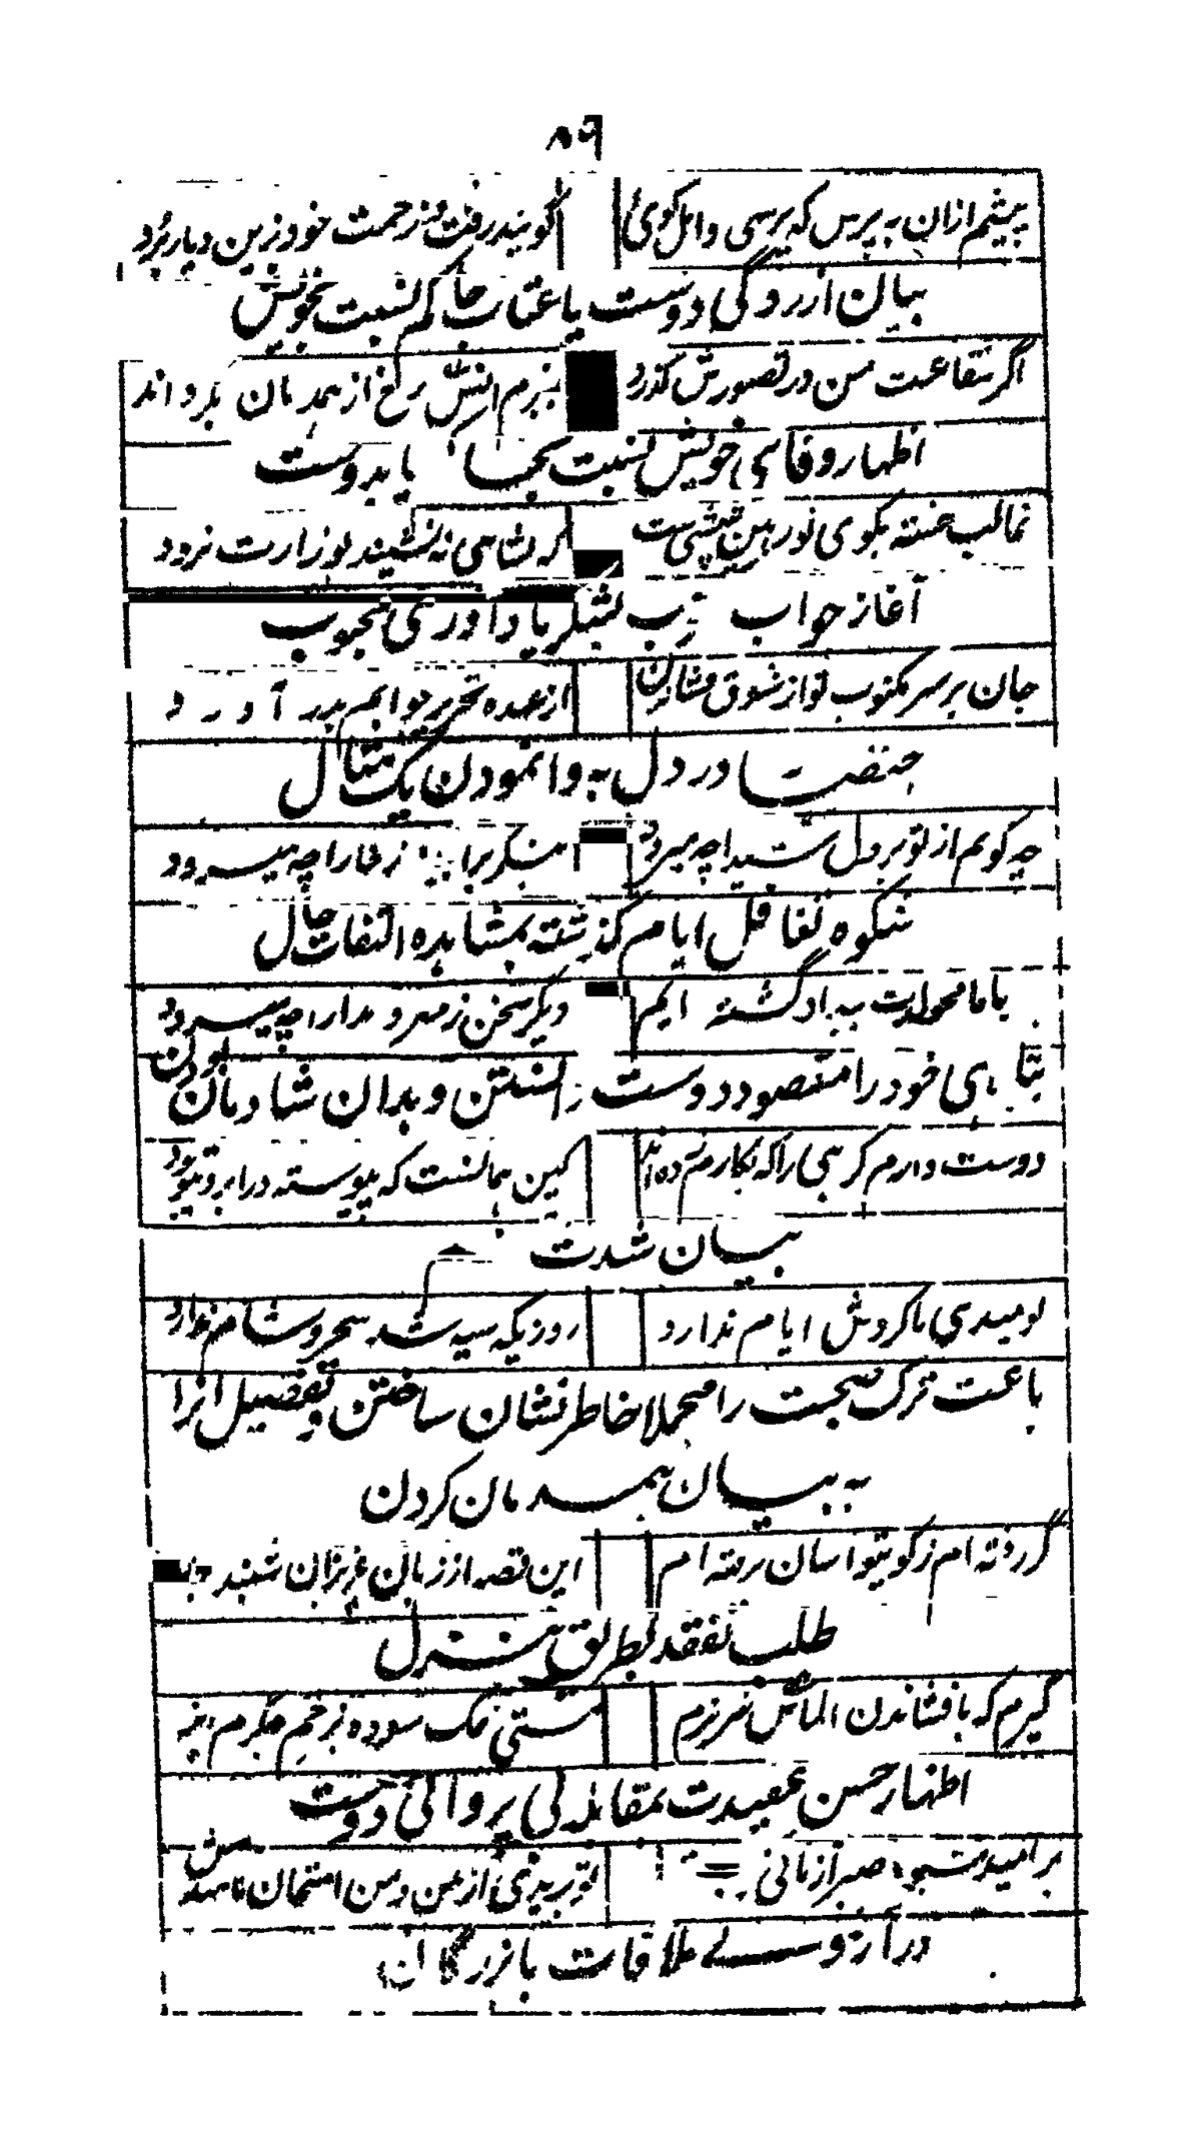 ۸۹
پیشم ازان به پرس که پرسی و اهل کوی گویند رفت و زحمت خود زین دیار برد
بیان آزردگی دوست یا عتاب حاکم نسبت بخویش
اگر شفاعت من در تصورش گذرد بزم انس رخ از همدمان بگرداند
اظهار وفای خویش نسبت بجفا یا بدوست
غالب خسته بکوی تو رهین پیشی ست گر بشاهی نه نشیند بوزارت نرود
آغاز جواب تشکر یادآوری محبوب
جان بر سر مکتوب تو از شوق فشاندن از عهده تحریر جوابم بدر آورد
در دل به وانمودن یک مثال
چه گویم از تو بر دل شیدا چه میرود بنگر بر آبگینه ز خارا چه میرود
شکوه تغافل ایام گذشته بمشاهده التفات حال
با ما که محو لذت بیداد گشته ایم دیگر سخن ز مهر و مدارا چه میرود
خود را مقصود دوست دانستن و بدان شادمان بودن
دوست دارم گرهی را که بکارم زده اند کین همانست که پیوسته در ابروی تو بود
بیان شدت
نومیدی ما گردش ایام ندارد روزیکه سیه شد سحر و شام ندارد
باعث ترک صحبت را مجملا خاطر نشان ساختن و تفصیل آنرا
به بیان همدمان کردن
گر رفته ام ز کوی تو آسان نرفته ام این قصه از زبان عزیزان شنیده
طلب تفقد بطریق تنزل
گیرم که بافشاندن الماس نیرزم مشتی نمک سوده بزخم جگرم ریز
اظهار حسن عقیدت بمقابله بی پروائی دوست
بر امید شیوه صبر آزمائی تو بریدی از من و من امتحان نامیدمش
در آرزوی ملاقات بازرگان